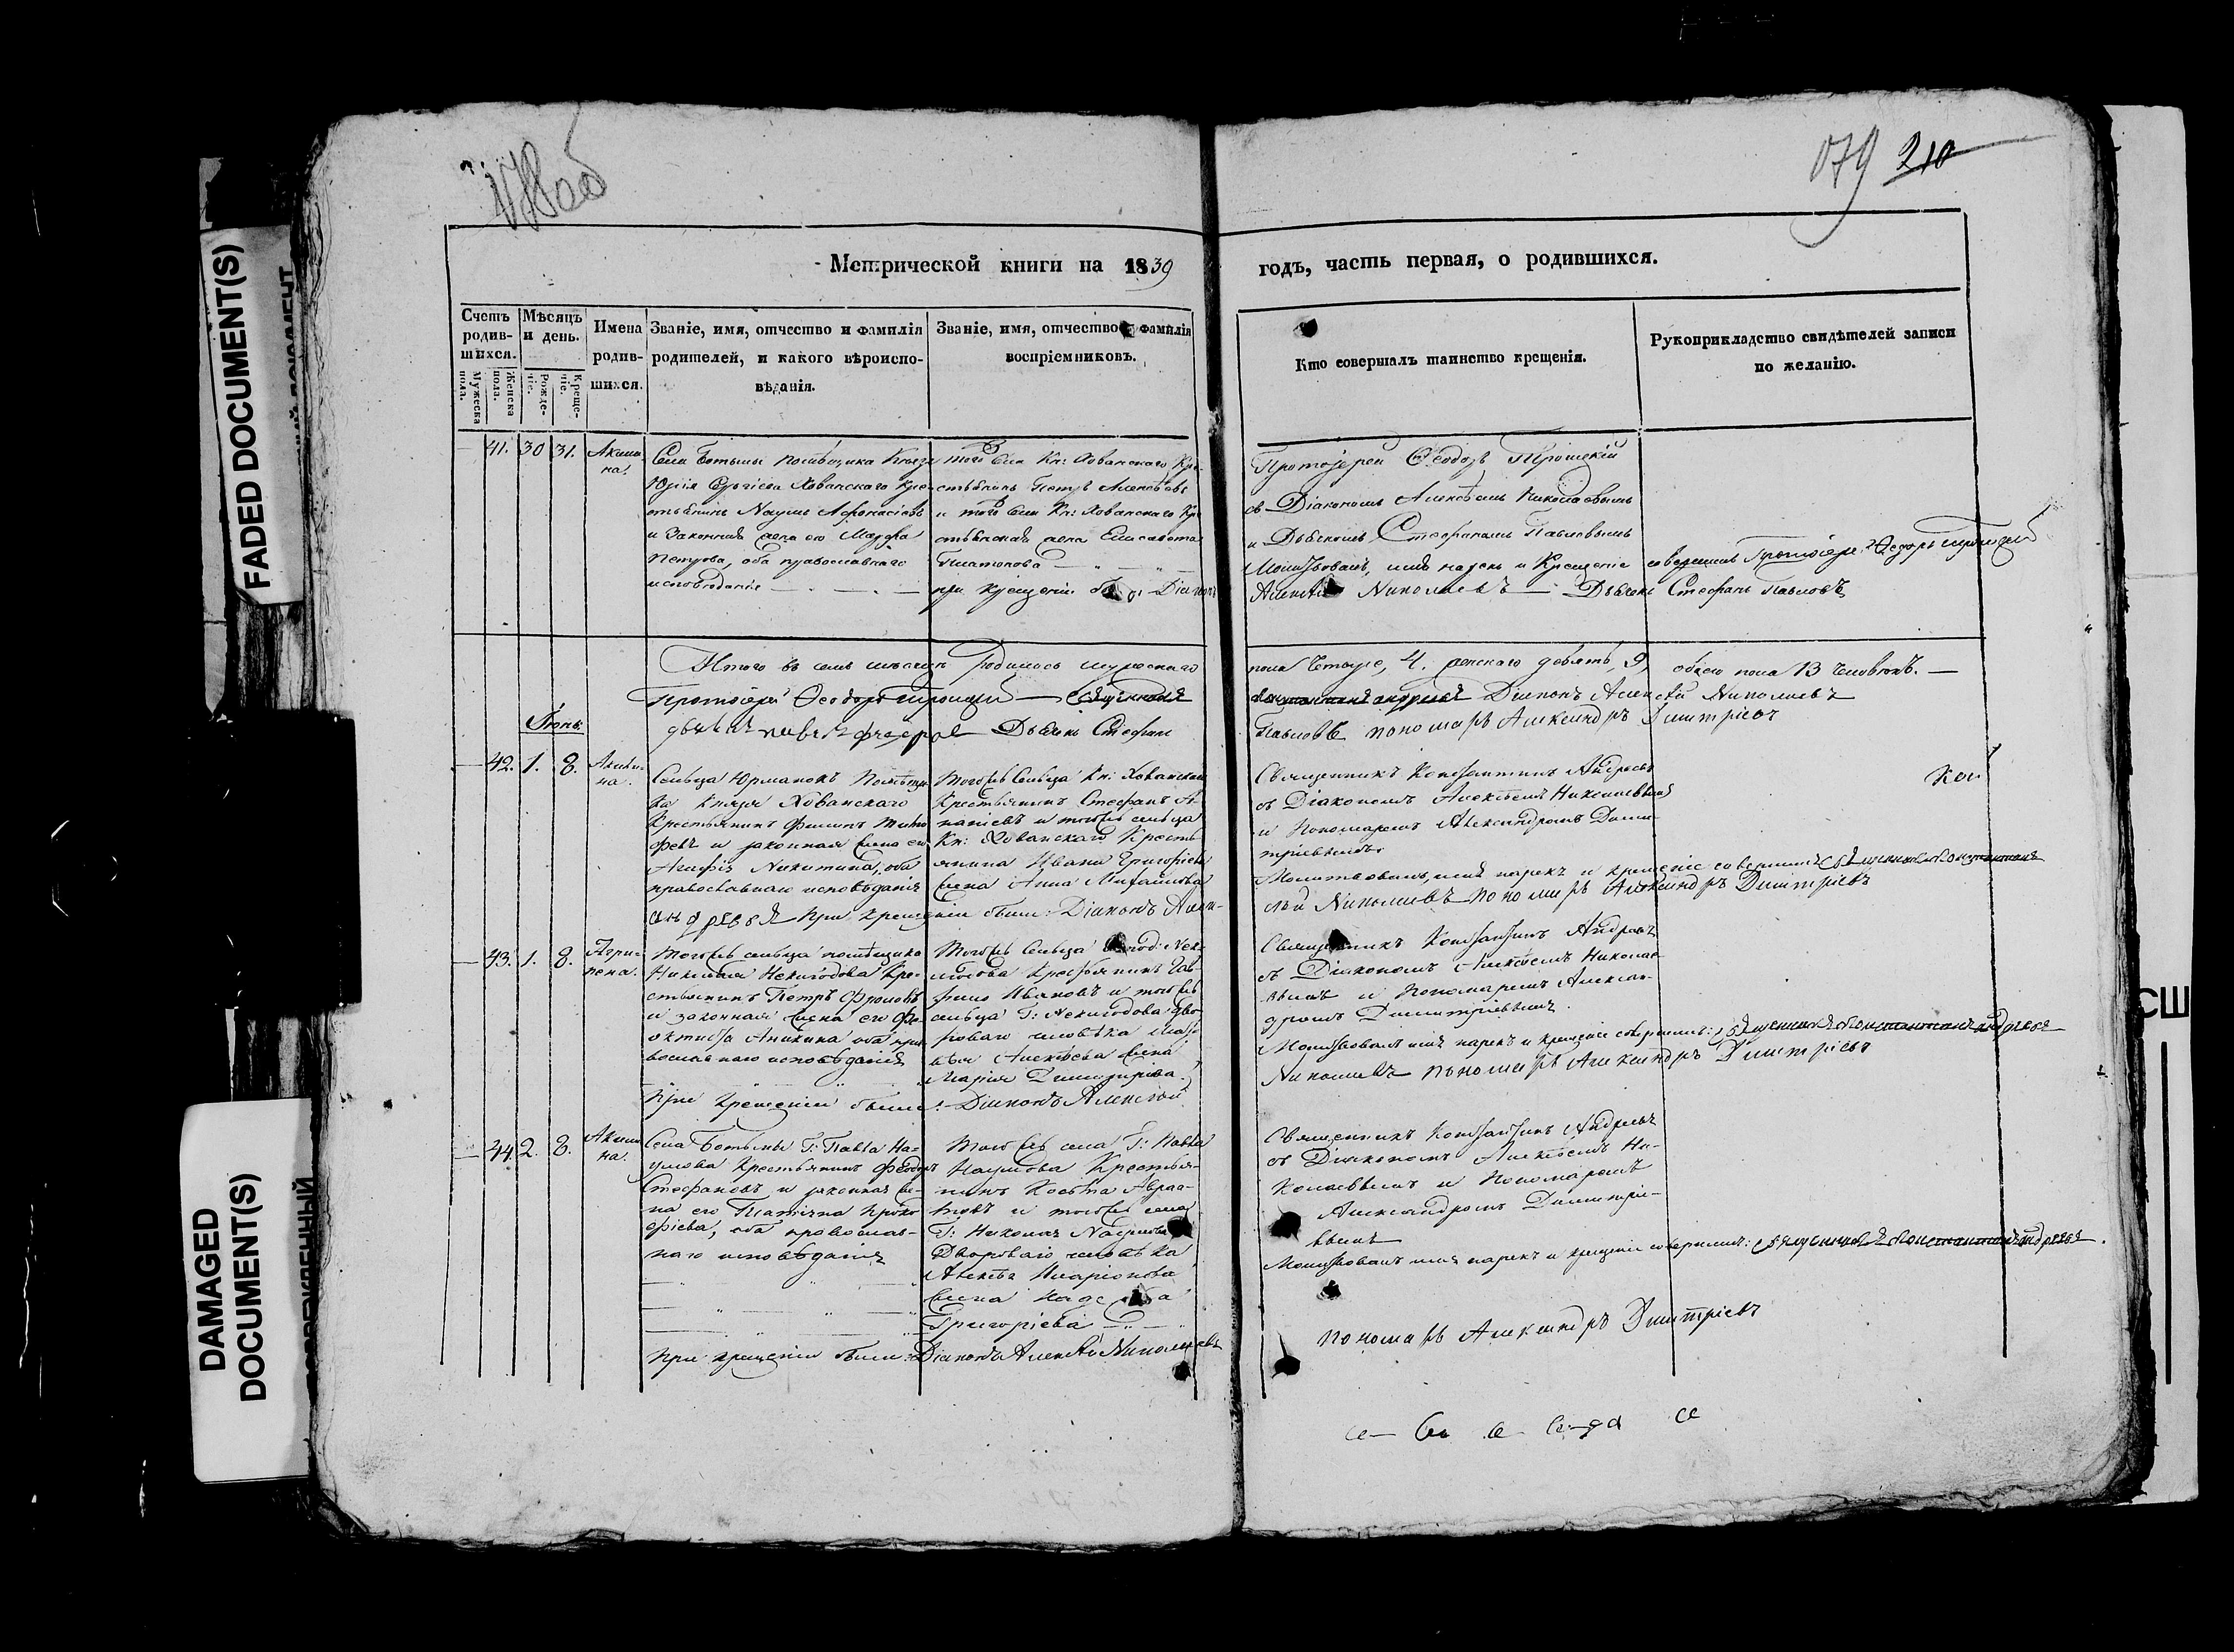 178об
079 210
Метрической книги на 1839
годъ, часть первая, о родившихся.
Счетъ родившихся.
Мужеска пола.
Женска пола.
Мѣсяцъ и день.
Рожденіе.
Крещеніе.
Имена родившихся.
Званіе, имя, отчество и фамилія
родителей, и какого вѣроиспо-
вѣданія.
Званіе, имя, отчество и фамилія
воспріемниковъ.
Кто совершалъ таинство крещенія.
Рукоприкладство свидѣтелей записи
по желанію.
41. 30 31. Акили-
на.
Села Бетьмы помѣщика Князя
Юрія Сергіева Хованскаго кре-
стьянинъ Наумъ Афонасіевъ
и законная жена его Марфа
Петрова, оба православнаго
исповѣданія
того села Кн: Хованскаго Кре-
стьянинъ Петръ Алексѣевъ
и того села Кн: Хованскаго Кре-
стьянская жена Елисавета
Платонова
при крещеніи были Діаконъ
Протоіерей Ѳеодоръ Троицкій
съ Діакономъ Алексѣемъ Николаевымъ
и Дьячкомъ Стефаномъ Павловымъ
Молитвовалъ, имя нарекъ и Крещеніе совершилъ Протоіерей Ѳедоръ Троицкій
Алексѣй Николаевъ Дьячекъ Стефанъ Павловъ
Итого въ семъ мѣсяцѣ родилось мужескаго
пола Четыре, 4. женскаго девять, 9, обоего пола 13 человѣкъ.
Протоіерей Ѳеодоръ Троицкій священникъ
Константинъ Андреевъ Діаконъ Алексѣй Николаевъ
Дьячекъ Стефанъ
Павловъ пономарь Александръ Димитріевъ
Іюнь.
42. 1. 8. Акили-
на.
Сельца Юрманокъ Помѣщи-
ка Князя Хованскаго
Крестьянинъ Филипъ Тимо-
феевъ и законная жена его
Агафія Никитина, оба
православнаго исповѣданія
Андреевъ При крещеніи были: Діаконъ Алек-
Тогожъ Сельца Кн: Хованскаго
Крестьянинъ Стефанъ А-
наніевъ и тогожъ сельца
Кн: Хованскаго Кресть-
янина Ивана Григоріева
жена Анна Михайлова
Священникъ Константинъ Андреевъ
съ Діакономъ Алексѣемъ Николаевымъ
и Пономаремъ Александромъ Дими-
тріевымъ
Молитвовалъ, имя нарекъ и крещеніе совершилъ: священникъ Константинъ
сѣй Николаевъ пономарь Александръ Димитріевъ
Кон
43. 1. 8. Агри-
пена.
Тогожъ сельца помѣщика
Николая Неклюдова Кре-
стьянинъ Петръ Фроловъ
и законная жена его Фе-
октиста Аникина оба пра-
вославнаго исповѣданія
При крещеніи были: Діаконъ Алексѣй
Тогожъ Сельца Господ: Нек-
людова Крестьянинъ Гав-
рило Ивановъ и тогожъ
сельца Г: Неклюдова Дво-
роваго человѣка
Алексѣева жена
Марія Димитріева.
Священникъ Константинъ Андреевъ
съ Діакономъ Алексѣемъ Никола-
евымъ и Пономаремъ Алексан-
дромъ Димитріевымъ.
Молитвовалъ имя нарекъ и крещеніе совершилъ: священникъ Константинъ Андреевъ
Николаевъ пономарь Александръ Димитріевъ
44. 2. 8. Акили-
на.
Села Бетьмы Г: Павла На-
умова Крестьянинъ Феодоръ
Стефановъ и законная же-
на его Татіана Проко-
фіева, оба православ-
наго исповѣданія
При крещеніи были: Діаконъ Алексѣй Николаевъ
Тогожъ села Г: Павла
Наумова Крестья-
нинъ Косьма
и тогожъ села
Г: Николая Наумова
Двороваго человѣка
Алексѣя Иларіонова
жена Надежда
Григоріева
Священникъ Константинъ Андреевъ
съ Діакономъ Алексѣемъ Ни-
колаевымъ и Пономаремъ
Александромъ Димитріе-
вымъ
Молитвовалъ имя нарекъ и крещеніе совершилъ: священникъ Константинъ Андреевъ.
пономарь Александръ Димитріевъ
FADED DOCUMENT(S)
DAMAGED
DOCUMENT(S)
СШ